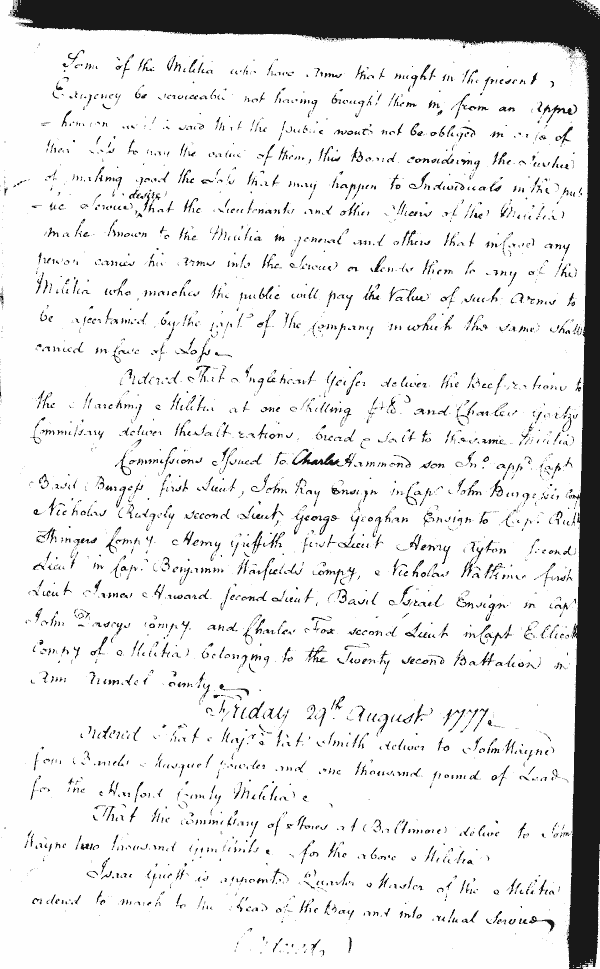 Some of the Militia who have Arms that might in the present
Exigency be serviceable not having brought them in, from an Appre
-hension as it is said that the public would not be obliged in case of
their Loss to pay the value of them, this Board considering the Justice
of making good the Loss that may happen to Individuals in the pub
-lic Service desire that the Lieutenants and other Officers of the Militia
make known to the Militia in general and others that in Case any
person carries his Arms into the Service or Lends them to any of the
Militia who marches the public will pay the Value of such Arms to
be ascertained by the Capt. of the Company in which the same shall
carried in Case of Loss
Ordered That Ingleheart Yeiser deliver the Beef rations to
the Marching Militia at one Shilling and Charles
Commissary deliver the Salt rations, bread & Salt to the same Militia
Commissions Issued to Charles Hammond son Jno. appd. Capt
Basil Burgess first Lieut, John Ray Ensign in Capt John Burgesses Compy
Nicholas Ridgely second Lieut, George Geoghan Ensign to Capt Richd
Stringers Compy Henry Griffith, first Lieut Henry Second
Lieut in Capt Benjamin Warfields Compy, Nicholas Watkins first
Lieut James Howard second Lieut, Basil Israel Ensign in Capt
John Dorseys Compy and Charles Fox second Lieut in Capt Ellicott
Compy of Militia belonging to the Twenty second Battalion in
Ann Arundel County
Friday 29th August 1777
Ordered That Majr. Nat. Smith deliver to John Wayne
four Barrels Musquet powder and one thousand pound of Lead
for the Harford County Militia
That the Commissary of Stores at Baltimore deliver to John
Wayne two thousand Gunflints for the above Militia
Isaac Griest is appointed Quarter Master of the Militia
ordered to march to the Head of the Bay and into actual Service